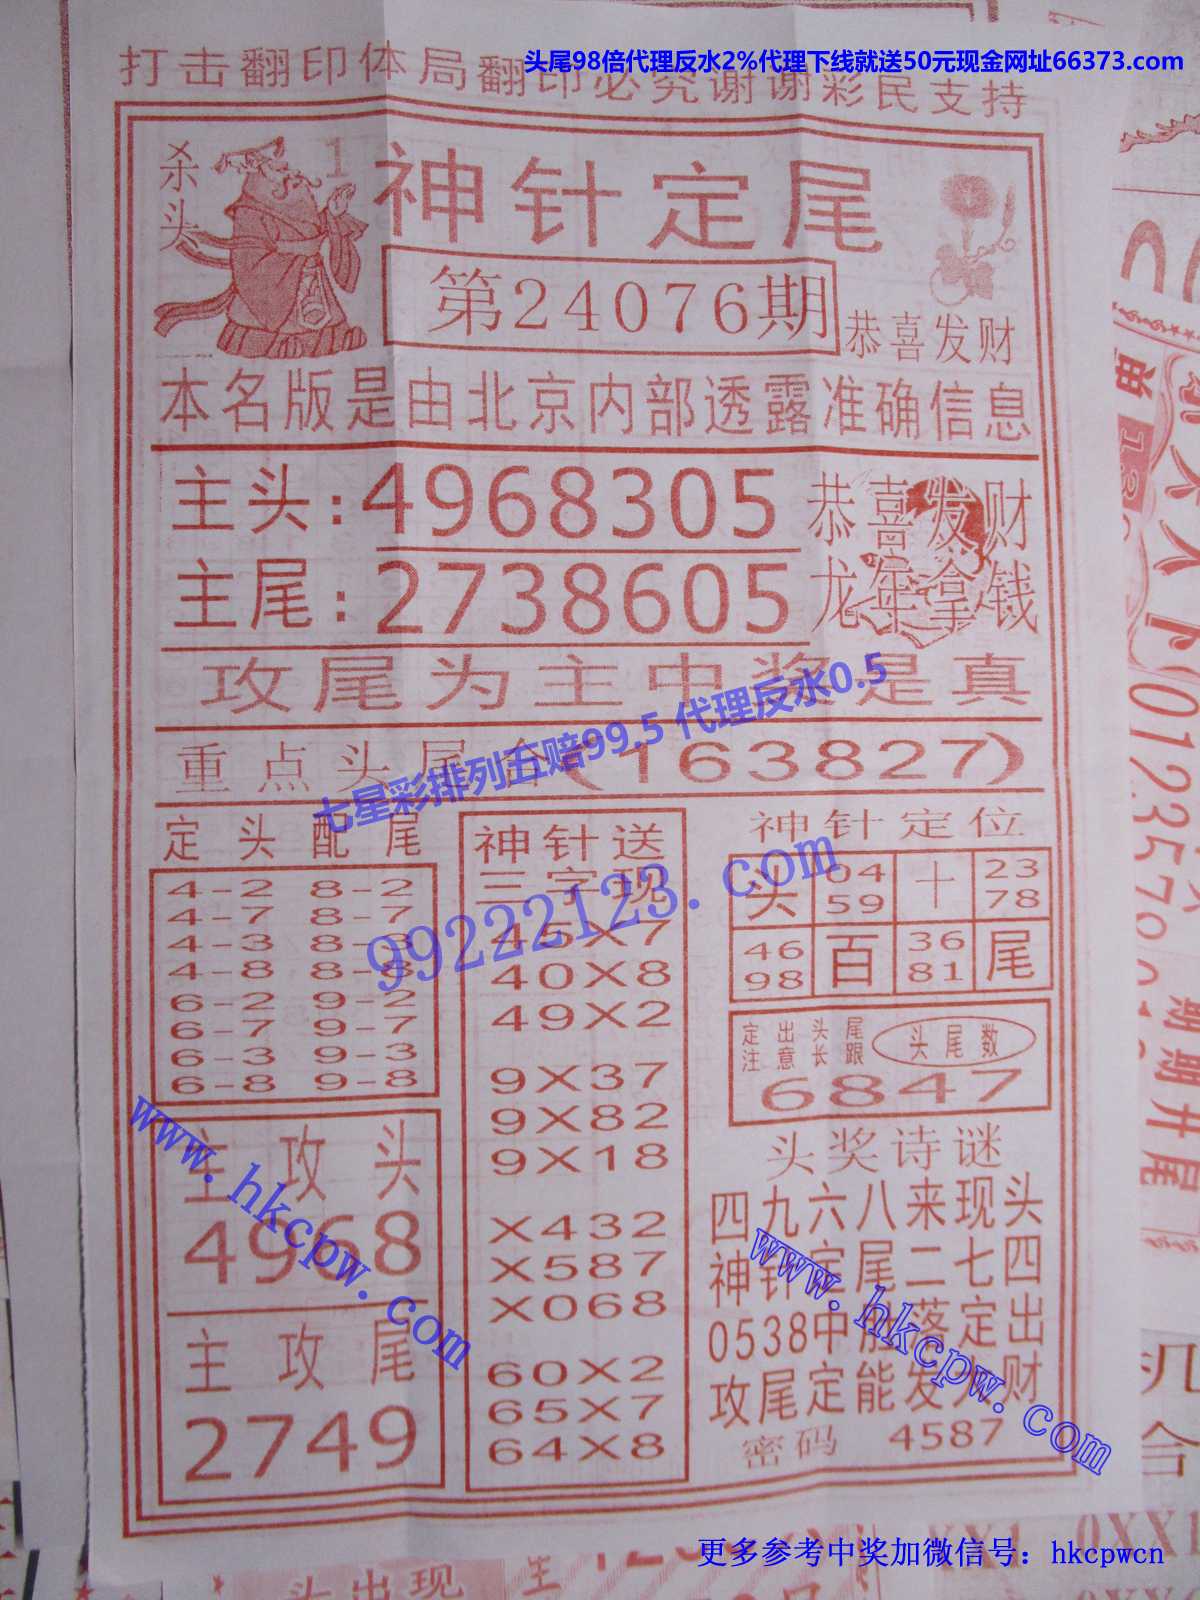 头尾98倍代理反水2%代理下线就送50元现金网址66373.com
打击翻印体局翻印必究谢谢彩民支持
杀头
1
神针定尾
第24076期
恭喜发财
本名版是由北京内部透露准确信息
主头:4968305
恭喜发财
主尾:2738605
龙年拿钱
攻尾为主中奖是真
七星彩排列五赔99.5 代理反水0.5
重点头尾合(163827)
定头配尾
4-2 8-2
4-7 8-7
4-3 8-3
4-8 8-8
6-2 9-2
6-7 9-7
6-3 9-3
6-8 9-8
主攻头
4968
主攻尾
2749
神针送
三字现
45X7
40X8
49X2
9X37
9X82
9X18
X432
X587
X068
60X2
65X7
64X8
99222123.com
神针定位
头 04 十 23
59 78
46 百 36 尾
98 81
定出头尾
注意长跟
头尾数
6847
头奖诗谜
四九六八来现头
神针定尾二七四
0538中胜落定出
攻尾定能发大财
密码 4587
www.hkcpw.com
www.hkcpw.com
单
12
01235789
期期井尾
头出现
更多参考中奖加微信号: hkcpwcn